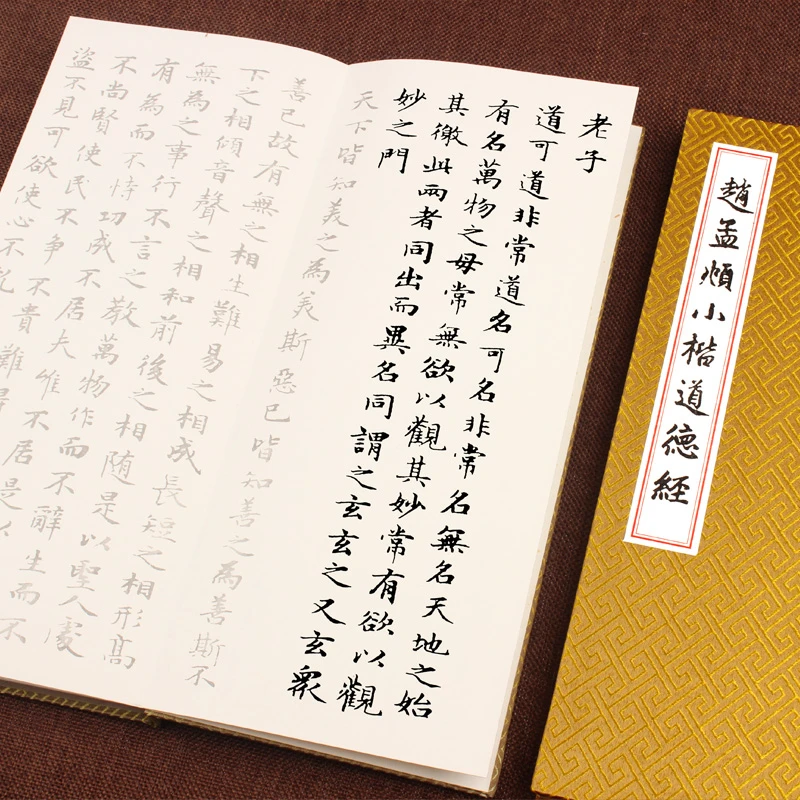 老子
道可道非常道名可名非常名無名天地之始
有名萬物之母常無欲以觀其妙常有欲以觀
其徼此兩者同出而異名同謂之玄玄之又玄衆
妙之門
天下皆知美之為美斯惡已皆知善之為善斯不
善已故有無之相生難易之相成長短之相形高
下之相傾音聲之相和前後之相随是以聖人處
無為之事行不言之教萬物作而不辭生而不
有為而不恃功成不居夫惟不居是以
不尚賢使民不争不貴難
盗不見可欲使心不
趙孟頫小楷道德經